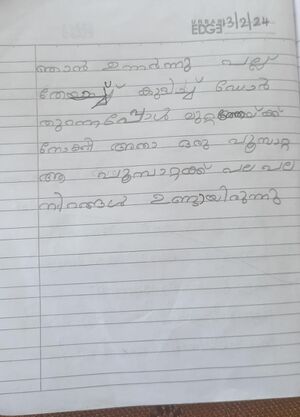 URBAN
EDGE 13/2/24
ഞാൻ ഉണർന്നു പല്ല്
തേയ്ച്ച് കുടിച്ച് ഡോർ
തുറന്നപ്പോൾ മുറ്റത്തേയ്ക്ക്
നോക്കി അതാ ഒരു പൂമ്പാറ്റ
ആ പൂമ്പാറ്റക്ക് പല പല
നിറങ്ങൾ ഉണ്ടായിരുന്നു